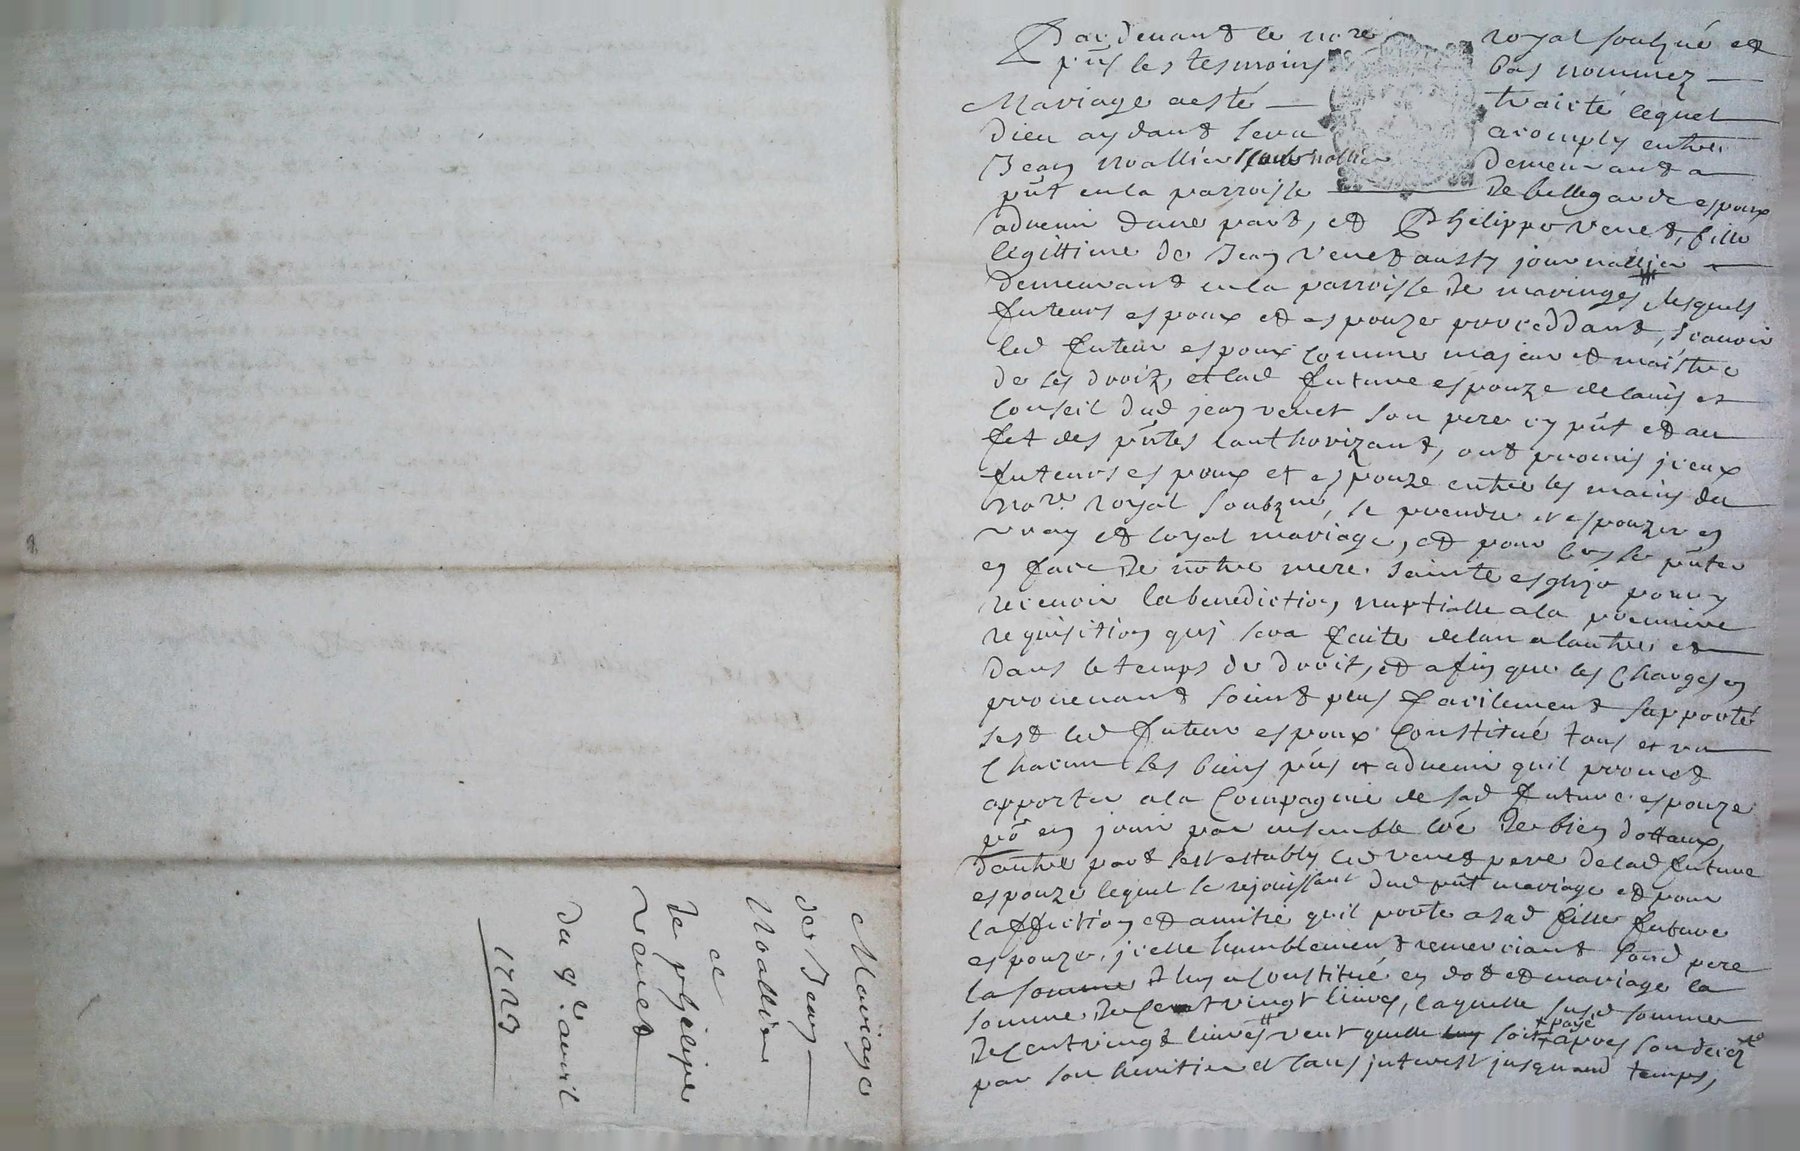 Mariage
de Jean
Noallier
et
de phelipe
Venet
Du 9e. avril
1723
Pardevant le nore royal soubzné et
pñs les tesmoins bas nommez
Mariage aesté traicté lequel
Dieu aydant sera acomply entre
Jean Noallier Journallier demeurant a
pñt en la parroisse De bellegarde espoux
advenir dune part, et Phelippe venet, fille
legittime de Jean Venet aussy journallier
demeurant en la parroisse De maringes, lesquels
futeurs espoux et espouze proceddant, scavoir
led futeur espoux comme majeur et maistre
de ses droitz, et lad future espouze de lavis et
Conseil dud jean venet son pere cy pñt et au
fet des pñtes lauthorizant, ont promis jceux
futeurs espoux et espouze entre les mains du
Nore. royal soubzné, se prendre et espouzer en
vray et loyal mariage, et pour ce se pñter
en face De nõtre mere sainte esglize pour y
recevoir la benediction nuptialle a la premiere
requisition quj sera faite de lun a lautre et
dans le temps de droit, et afin que les Charges en
provenant soint plus facilement supporté
sest led futeur espoux Constitué tous et un
Chacun ses biens pñs et advenir quil promet
apporter a la Compagnie de sad future espouze
põ en jouir par ensemble De bien dottaux,
dautre part sest estably led venet pere de lad future
espouze lequel se rejouissant dud pñt mariage et pour
laffection et amitié quil porte a sad fille future
espouze, jcelle humblement remerciant sond pere
la somme Il luy a Constitué en dot et mariage la
somme De Cent vingt livres, laquelle susd somme
De Cent vingt livres veut quelle luy soit payé apres son decez
par son heritier et sans jnterest jusquaud temps,